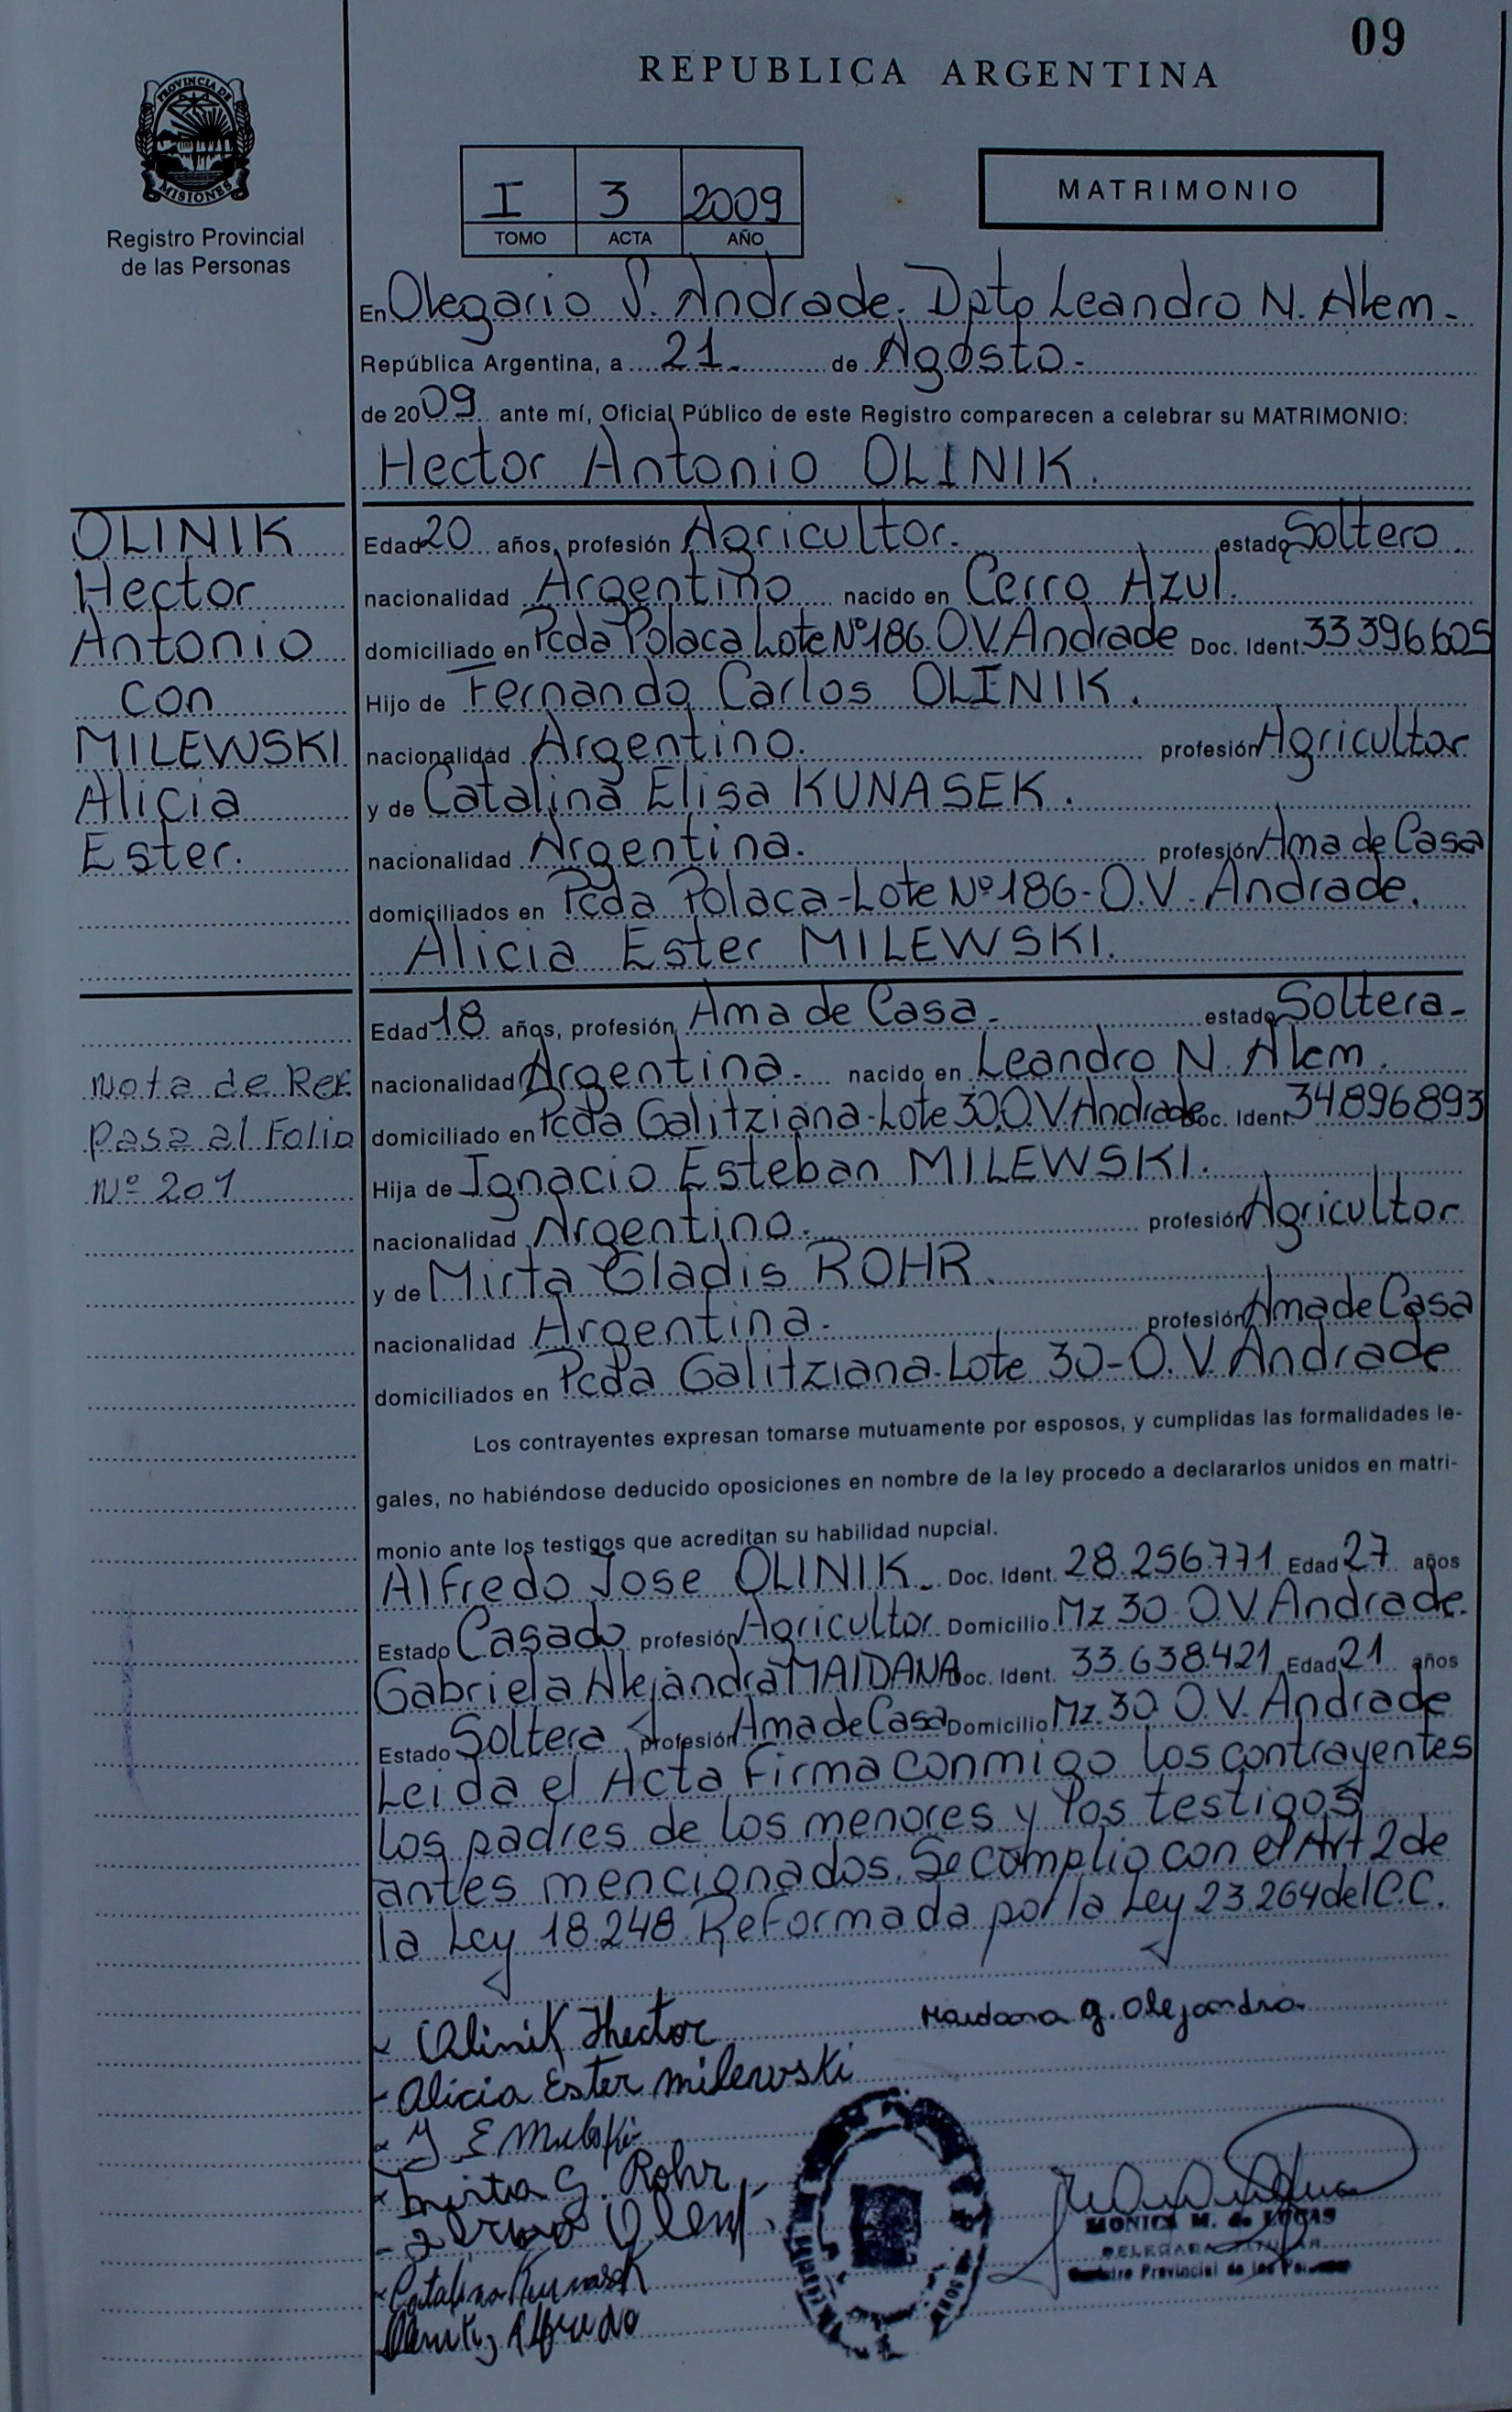 09
REPUBLICA ARGENTINA
PROVINCIA DE
MISIONES
Registro Provincial
de las Personas
I 3 2009
TOMO ACTA AÑO
MATRIMONIO
En Olegario V. Andrade. Dpto Leandro N. Alem-
República Argentina, a 21- de Agosto-
de 2009 ante mí, Oficial Público de este Registro comparecen a celebrar su MATRIMONIO:
Hector Antonio OLINIK.
OLINIK
Hector
Antonio
con
MILEWSKI
Alicia
Ester.
Edad 20 años, profesión Agricultor. estado Soltero.
nacionalidad Argentino nacido en Cerro Azul.
domiciliado en Pcda Polaca Lote Nº 186. O.V. Andrade Doc. Ident. 33396605
Hijo de Fernando Carlos OLINIK.
nacionalidad Argentino. profesión Agricultor
y de Catalina Elisa KUNASEK.
nacionalidad Argentina. profesión Ama de Casa
domiciliados en Pcda Polaca-Lote Nº 186-O.V. Andrade.
Alicia Ester MILEWSKI.
Nota de Ref.
pasa al Folio
Nº 201
Edad 18 años, profesión Ama de Casa- estado Soltera-
nacionalidad Argentina- nacido en Leandro N. Alem.
domiciliado en Pcda Galitziana-Lote 30.O.V. Andrade Doc. Ident. 34.896893
Hija de Ignacio Esteban MILEWSKI.
nacionalidad Argentino. profesión Agricultor
y de Mirta Gladis ROHR.
nacionalidad Argentina- profesión Ama de Casa
domiciliados en Pcda Galitziana-Lote 30-O.V. Andrade
Los contrayentes expresan tomarse mutuamente por esposos, y cumplidas las formalidades le-
gales, no habiéndose deducido oposiciones en nombre de la ley procedo a declararlos unidos en matri-
monio ante los testigos que acreditan su habilidad nupcial.
Alfredo Jose OLINIK- Doc. Ident. 28.256.771 Edad 27 años
Estado Casado profesión Agricultor Domicilio Mz 30 O.V. Andrade.
Gabriela Alejandra MAIDANA Doc. Ident. 33.638.421 Edad 21 años
Estado Soltera profesión Ama de Casa Domicilio Mz. 30 O.V. Andrade
Leida el Acta Firma conmigo los contrayentes
los padres de los menores y los testigos
antes mencionados. Se complio con el Art 2 de
la Ley 18.248 Reformada por la Ley 23.264 del C.C.
Olinik Hector
Maidana G. Alejandra
Alicia Ester Milewski
Mirta G. Rohr
Catalina Kunasek
MONICA M. de LUCAS
DELEGADA TITULAR
Registro Provincial de las Personas